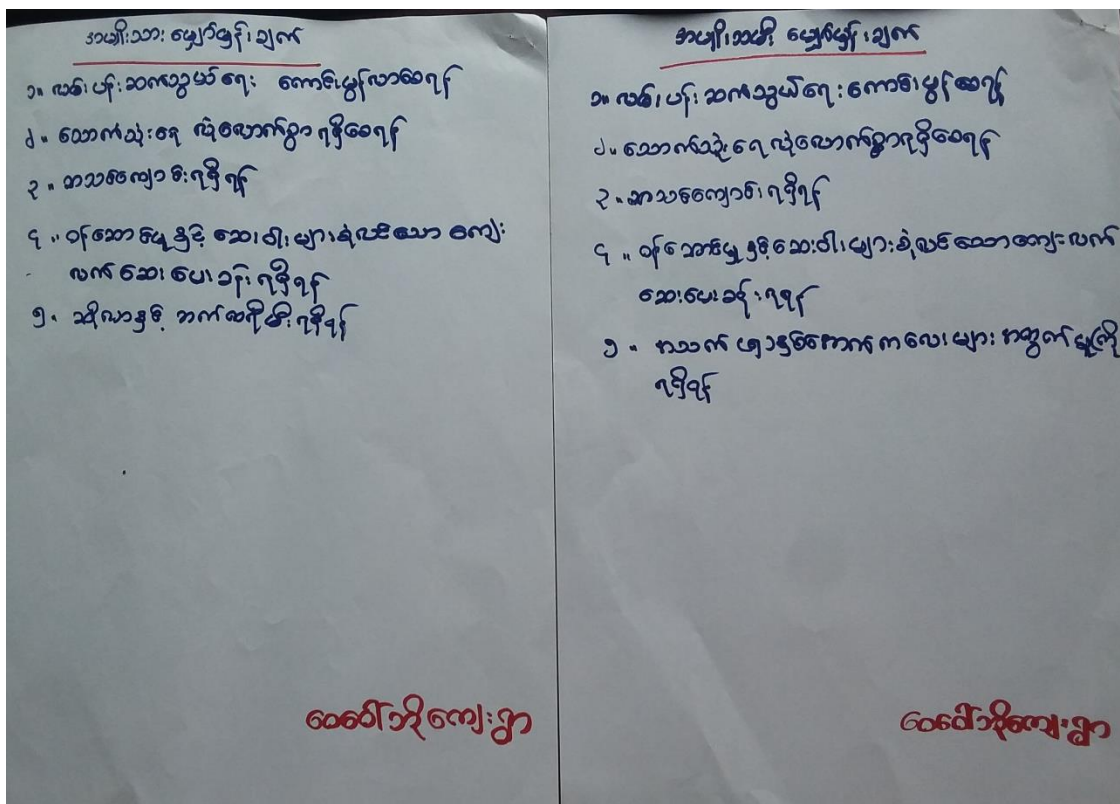 အမျိုးသား မျှော်မှန်းချက်
၁။ လမ်းပန်းဆက်သွယ်ရေး ကောင်းမွန်လာစေရန်
၂။ သောက်သုံးရေ လုံလောက်စွာ ရရှိစေရန်
၃။ စာသင်ကျောင်းရရှိရန်
၄။ ဝန်ဆောင်မှုနှင့် ဆေးဝါးများစုံလင်သော ကျေး
လက်ဆေးပေးခန်းရရှိရန်
၅။ ဆိုလာနှင့် ဘက်ထရီမီးရရှိရန်
ဝေါကျေးရွာ
အမျိုးသမီး မျှော်မှန်းချက်
၁။ လမ်းပန်းဆက်သွယ်ရေးကောင်းမွန်စေရန်
၂။ သောက်သုံးရေလုံလောက်စွာရရှိစေရန်
၃။ စာသင်ကျောင်းရရှိရန်
၄။ ဝန်ဆောင်မှုနှင့်ဆေးဝါးများစုံလင်သောကျေးလက်
ဆေးပေးခန်းရရန်
၅။ အသက် ၅နှစ်အောက်ကလေးများအတွက်မူကြို
ရရှိရန်
ကျေးရွာ